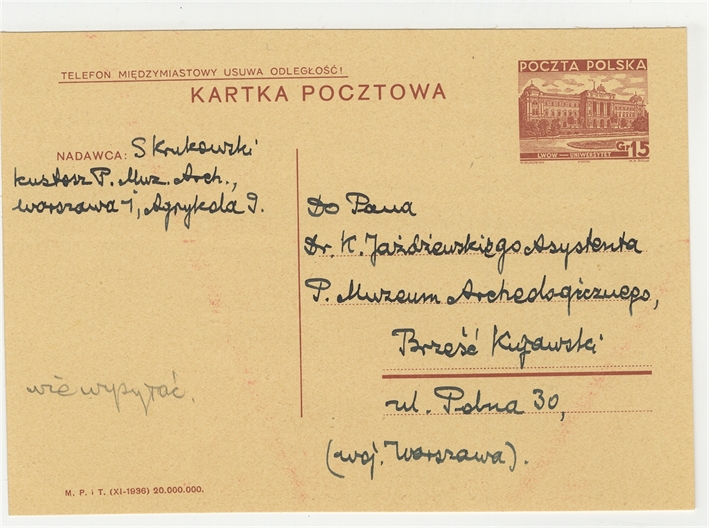 TELEFON MIĘDZYMIASTOWY USUWA ODLEGŁOŚĆ!
KARTKA POCZTOWA
POCZTA POLSKA
LWÓW — UNIWERSYTET
Gr 15
NADAWCA: S Krukowski
kustosz P. Muz. Arch.,
Warszawa 1, Agrykola 9.
Do Pana
Dr. K. Jażdżewskięgo Asystenta
P. Muzeum Archeologicznego,
Brześć Kujawski
ul. Polna 30,
(woj. Warszawa).
nie wysyłać.
M. P. i T. (XI-1936) 20.000.000.